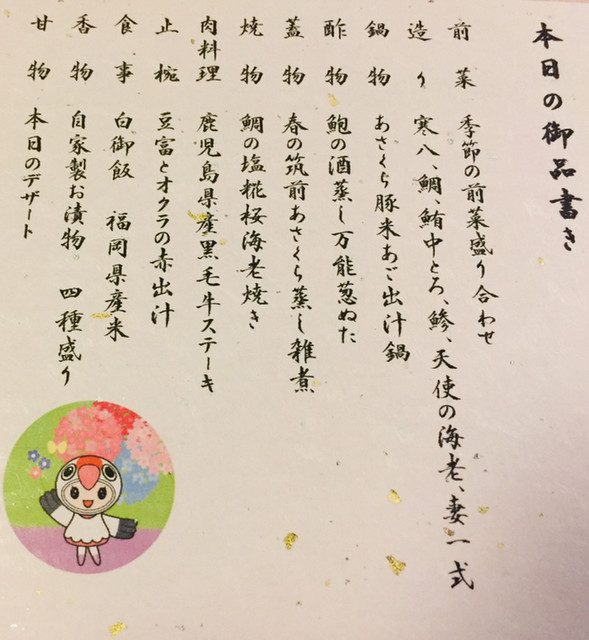 本日の御品書き
前菜　季節の前菜盛り合わせ
造り　寒八、鯛、鮪中とろ、鯵、天使の海老、妻一式
鍋物　あさくら豚米あご出汁鍋
酢物　鮑の酒蒸し万能葱ぬた
蓋物　春の筑前あさくら蒸し雑煮
焼物　鯛の塩糀桜海老焼き
肉料理　鹿児島県産黒毛牛ステーキ
止椀　豆富とオクラの赤出汁
食事　白御飯　福岡県産米
香物　自家製お漬物　四種盛り
甘物　本日のデザート